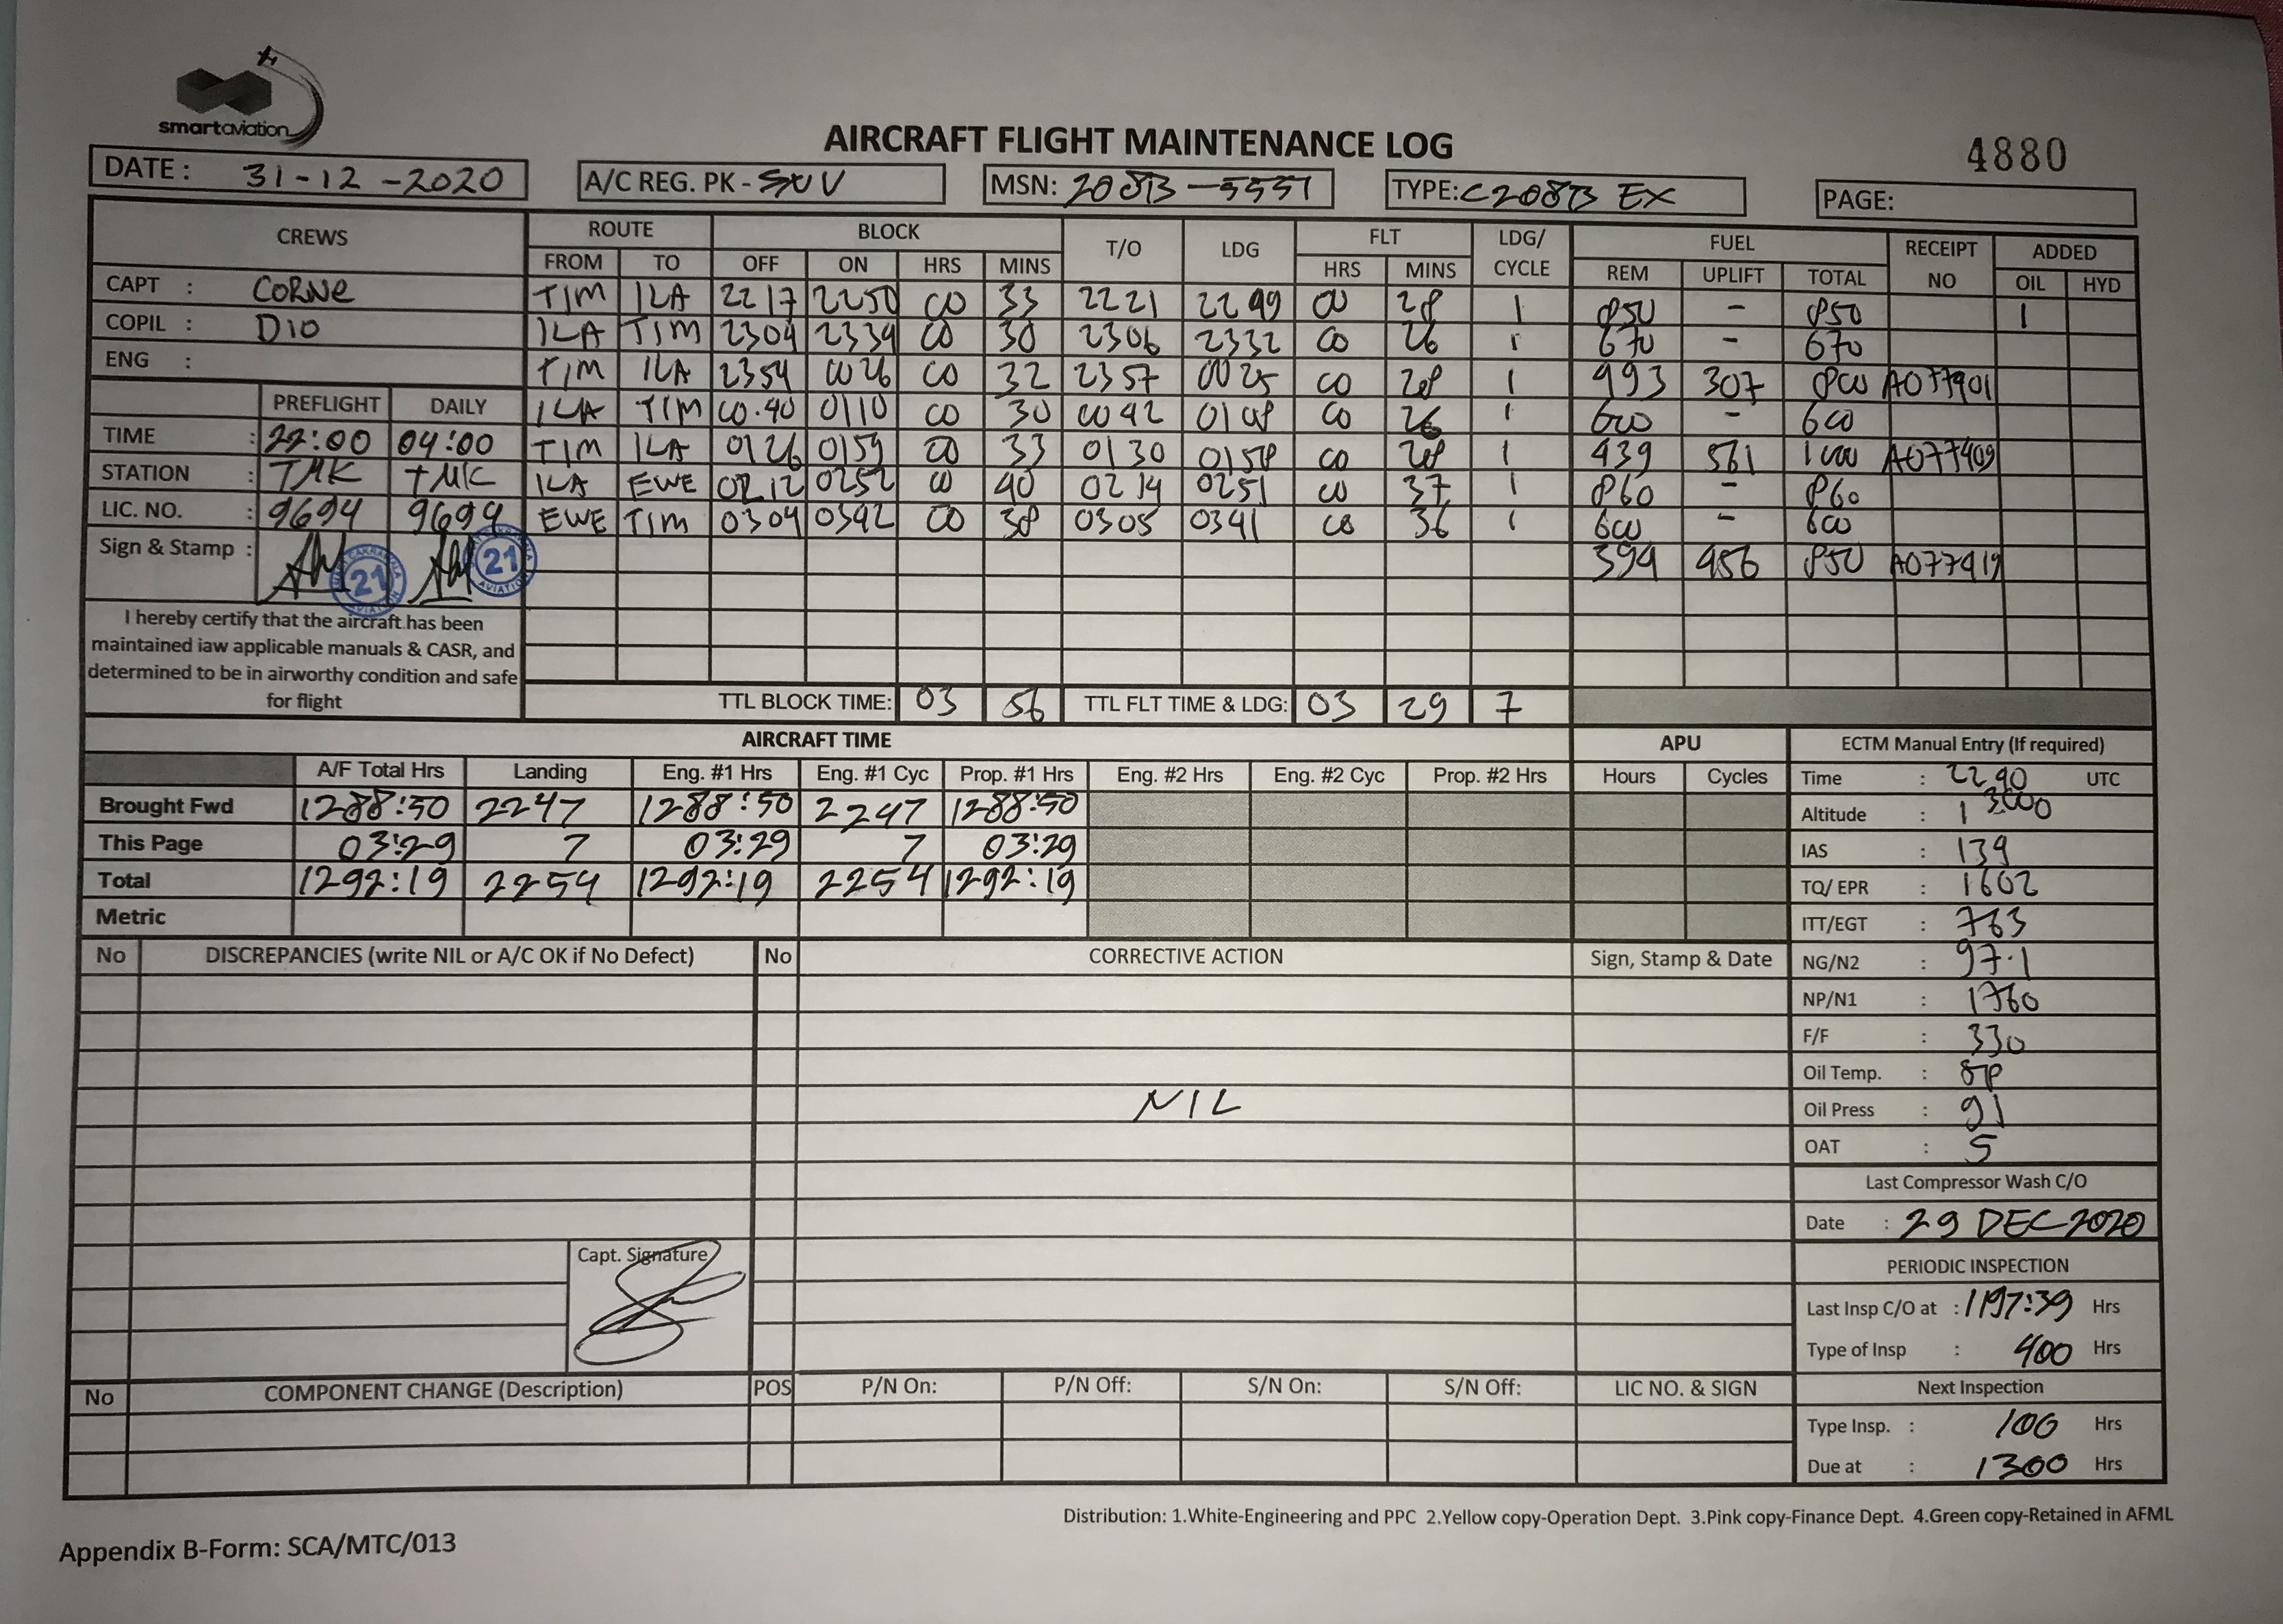 smartaviation
AIRCRAFT FLIGHT MAINTENANCE LOG
4880
DATE : 31-12-2020 A/C REG. PK - SNV MSN: 208B-5551 TYPE: C208B EX PAGE:
CREWS ROUTE BLOCK T/O LDG FLT LDG/ CYCLE FUEL RECEIPT NO ADDED
FROM TO OFF ON HRS MINS HRS MINS REM UPLIFT TOTAL OIL HYD
CAPT : CORNE TIM ILA 2217 2250 00 33 2221 2249 00 28 1 850 - 850 1
COPIL : DIO ILA TIM 2304 2334 00 30 2306 2332 00 26 1 670 - 670
ENG : TIM ILA 2354 0026 00 32 2357 0025 00 28 1 493 307 800 A077401
PREFLIGHT DAILY ILA TIM 00.40 0110 00 30 0042 0108 00 26 1 600 - 600
TIME : 22:00 04:00 TIM ILA 0126 0159 00 33 0130 0158 00 28 1 439 561 1000 A077409
STATION : TMK TMK ILA EWE 0212 0252 00 40 0214 0251 00 37 1 860 - 860
LIC. NO. : 9694 9694 EWE TIM 0304 0342 00 38 0305 0341 00 36 1 600 - 600
Sign & Stamp : 21 21 394 456 850 A077419
I hereby certify that the aircraft has been
maintained iaw applicable manuals & CASR, and
determined to be in airworthy condition and safe
for flight
TTL BLOCK TIME: 03 56 TTL FLT TIME & LDG: 03 29 7
AIRCRAFT TIME APU ECTM Manual Entry (If required)
A/F Total Hrs Landing Eng. #1 Hrs Eng. #1 Cyc Prop. #1 Hrs Eng. #2 Hrs Eng. #2 Cyc Prop. #2 Hrs Hours Cycles Time : 2240 UTC
Brought Fwd 1288:50 2247 1288:50 2247 1288:50 Altitude : 13000
This Page 03:29 7 03:29 7 03:29 IAS : 139
Total 1292:19 2254 1292:19 2254 1292:19 TQ/ EPR : 1602
Metric ITT/EGT : 763
No DISCREPANCIES (write NIL or A/C OK if No Defect) No CORRECTIVE ACTION Sign, Stamp & Date NG/N2 : 97.1
NP/N1 : 1760
F/F : 330
Oil Temp. : 58
NIL
Oil Press : 91
OAT : 5
Last Compressor Wash C/O
Date : 29 DEC 2020
Capt. Signature
PERIODIC INSPECTION
Last Insp C/O at : 1197:39 Hrs
Type of Insp : 400 Hrs
No COMPONENT CHANGE (Description) POS P/N On: P/N Off: S/N On: S/N Off: LIC NO. & SIGN Next Inspection
Type Insp. : 100 Hrs
Due at : 1300 Hrs
Distribution: 1.White-Engineering and PPC 2.Yellow copy-Operation Dept. 3.Pink copy-Finance Dept. 4.Green copy-Retained in AFML
Appendix B-Form: SCA/MTC/013